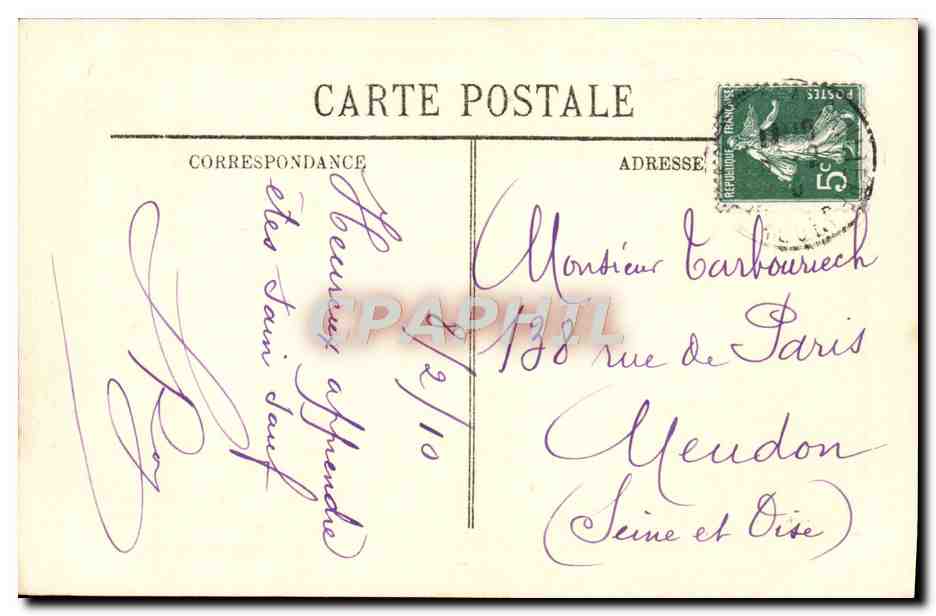 CARTE POSTALE
CORRESPONDANCE
ADRESSE
REPUBLIQUE FRANÇAISE
POSTES
5c
8/2/10
Heureux apprendre
êtes sain sauf
Monsieur Tarbouriech
138 rue de Paris
Meudon
(Seine et Oise)
CPAPHIL